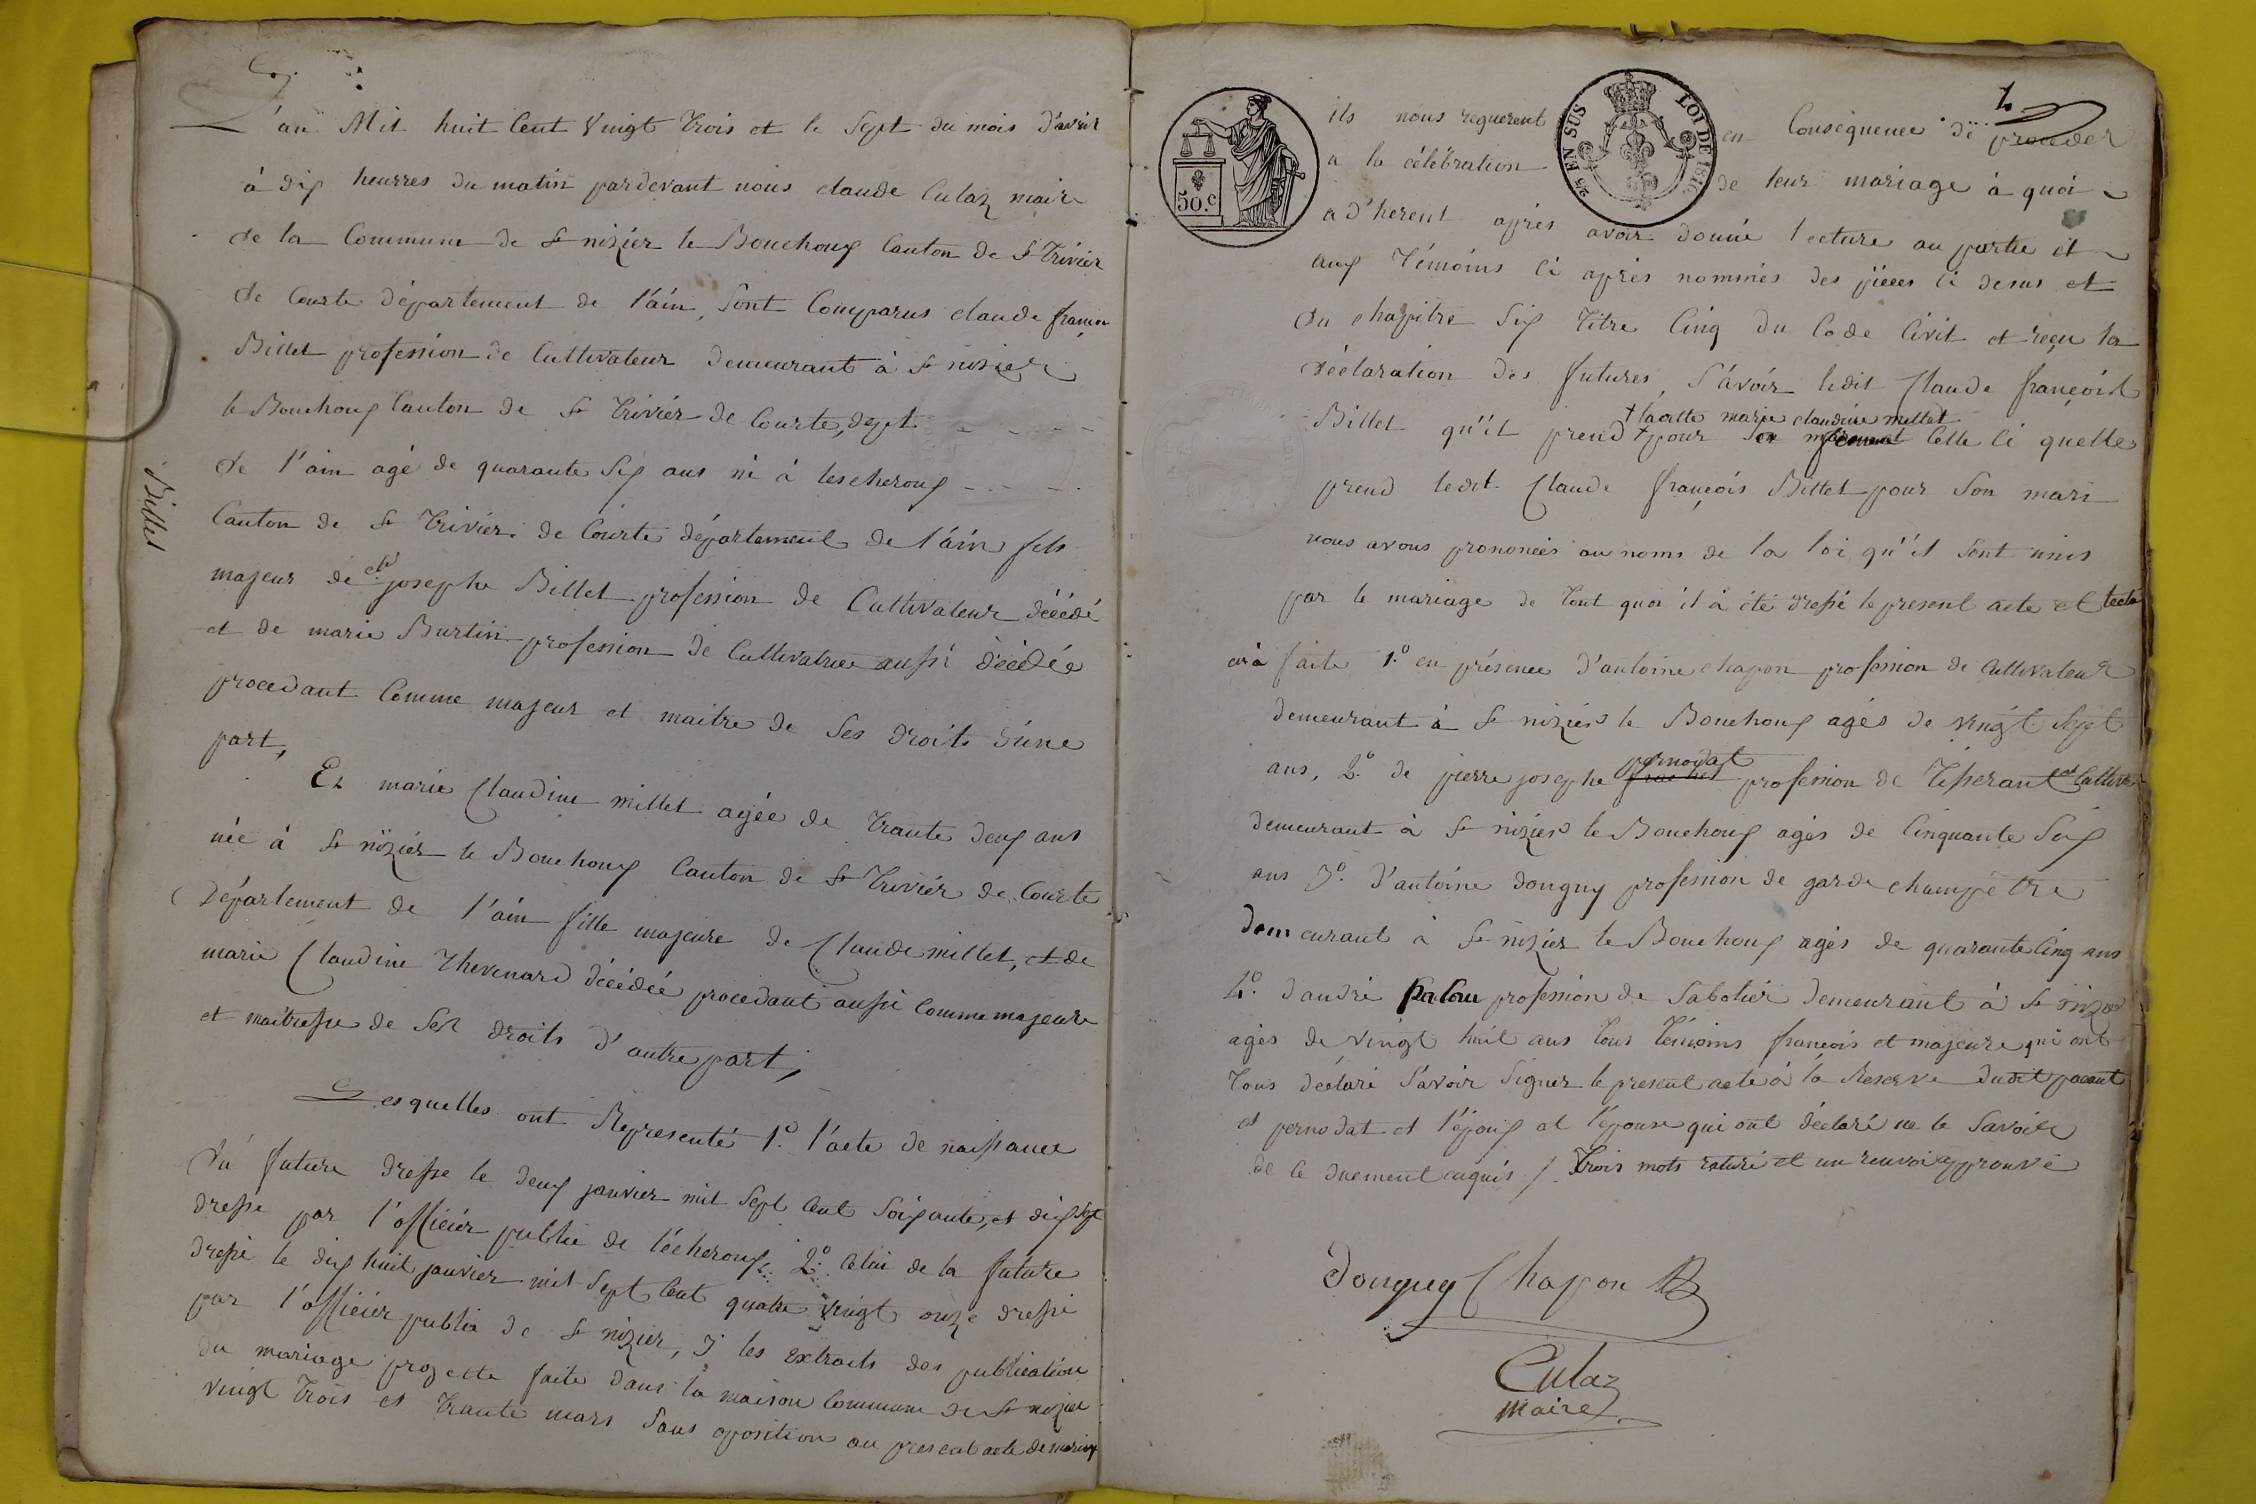 L'an Mil huit Cent Vingt Trois et le Sept du mois d'avril
à dix heurres du matin pardevant nous claude Culaz maire
de la Commune de St nizier le Bouchoux Canton de St Trivier
de Courte département de l'ain, Sont Comparus claude françois
Billet profession de Cultivateur demeurant à St nizier
le Bouchoux Canton de St Trivier de Courte, dept
de l'ain agé de quarante Six ans né à lescheroux
Canton de St Trivier de Courte département de l'ain fils
majeur de cld josephe Billet profession de Cultivateur décédé
et de marie Burtin profession de Cultivatrice aussi décédée
procedant Comme majeur et maitre de Ses droits d'une
part,
Et marie Claudine millet agée de Trante deux ans
née à St nizier le Bouchoux Canton de St Trivier de Courte
Département de l'ain fille majeure de Claude millet, et de
marie Claudine Thevenard décédée procedant aussi Comme majeure
et maitresse de Ses droits d'autre part,
Lesquelles ont Representé 1.º l'acte de naissance
du future dressé le deux janvier mil Sept Cent Soixante, et dix Sept
dresse par l'officiér public de lécheroux. 2.º Celui de la future
dressé le dix huit janvier mil Sept Cent quatre vingt onze dressé
par l'officiér public de St nizier, 3 les extraits des publication
du mariage projetté faite dans la maison Commune de St nizier
vingt Trois et Trante mars Sans oposition au present acte de mariage
Billet
1
50.c
25 EN SUS
LOI DE 1816
ils nous requerent en Conséquence de proceder
a la célébration de leur mariage à quoi
ad'herent après avoir donné lecture au partie et
aux Témoins Ci après nommés des pièces Ci desus et
du chapitre Six Titre Cinq du Code Civil et reçu la
déclaration des futures, S'avoir ledit Claude françois
+ laditte marie claudine millet
Billet qu'il prend + pour Son femme Celle Ci quelle
prend ledit Claude françois Billet pour Son mari
nous avons prononcés au noms de la loi qu'il Sont unis
par le mariage de Tout quoi il à été dressé le present acte et
faite 1.º en présence d'antoine chapon profession de Cultivateur
demeurant à St nizier le Bouchoux agés de vingt Sept
pernodat
ans, 2.º de pierre josephe profession de Tisserant et Cultiva
demeurant à St nizier le Bouchoux agés de Cinquante Six
ans 3.º d'antoine dongny profession de garde champêtre
demeurant à St nizier le Bouchoux agés de quarante Cinq ans
4.º d'andré Palou profession de Sabotier demeurant à St nizier
agés de vingt huit ans Tous Témoins françois et majeure qui ont
Tous déclaré S'avoir Signer le present acte à la Reserve dudit
et pernodat et l'époux et l'épouse qui ont déclaré ne le Savoir
de le duement enquis /. Trois mots raturé et un renvoi approuvé
dongny Chapon
Culaz
Maire